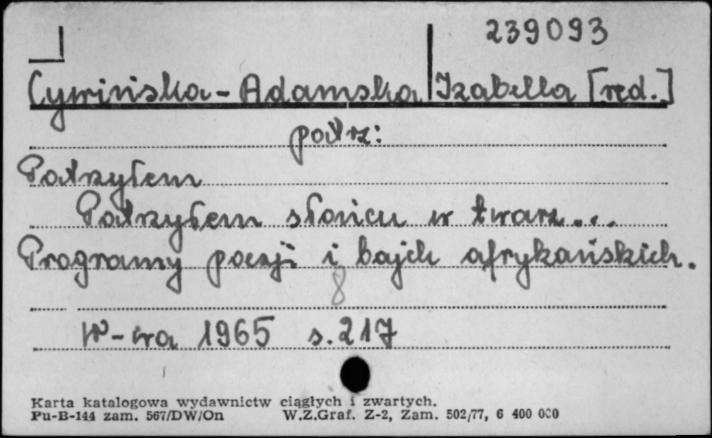 239093
Cywińska-Adamska Izabella [red.]
patrz:
Patrzyłem
Patrzyłem słońcu w twarz...
Programy poezji i bajek afrykańskich.
8
W-wa 1965 s.217
Karta katalogowa wydawnictw ciągłych i zwartych.
Pu-B-144 zam. 567/DW/On W.Z.Graf. Z-2, Zam. 502/77, 6 400 000